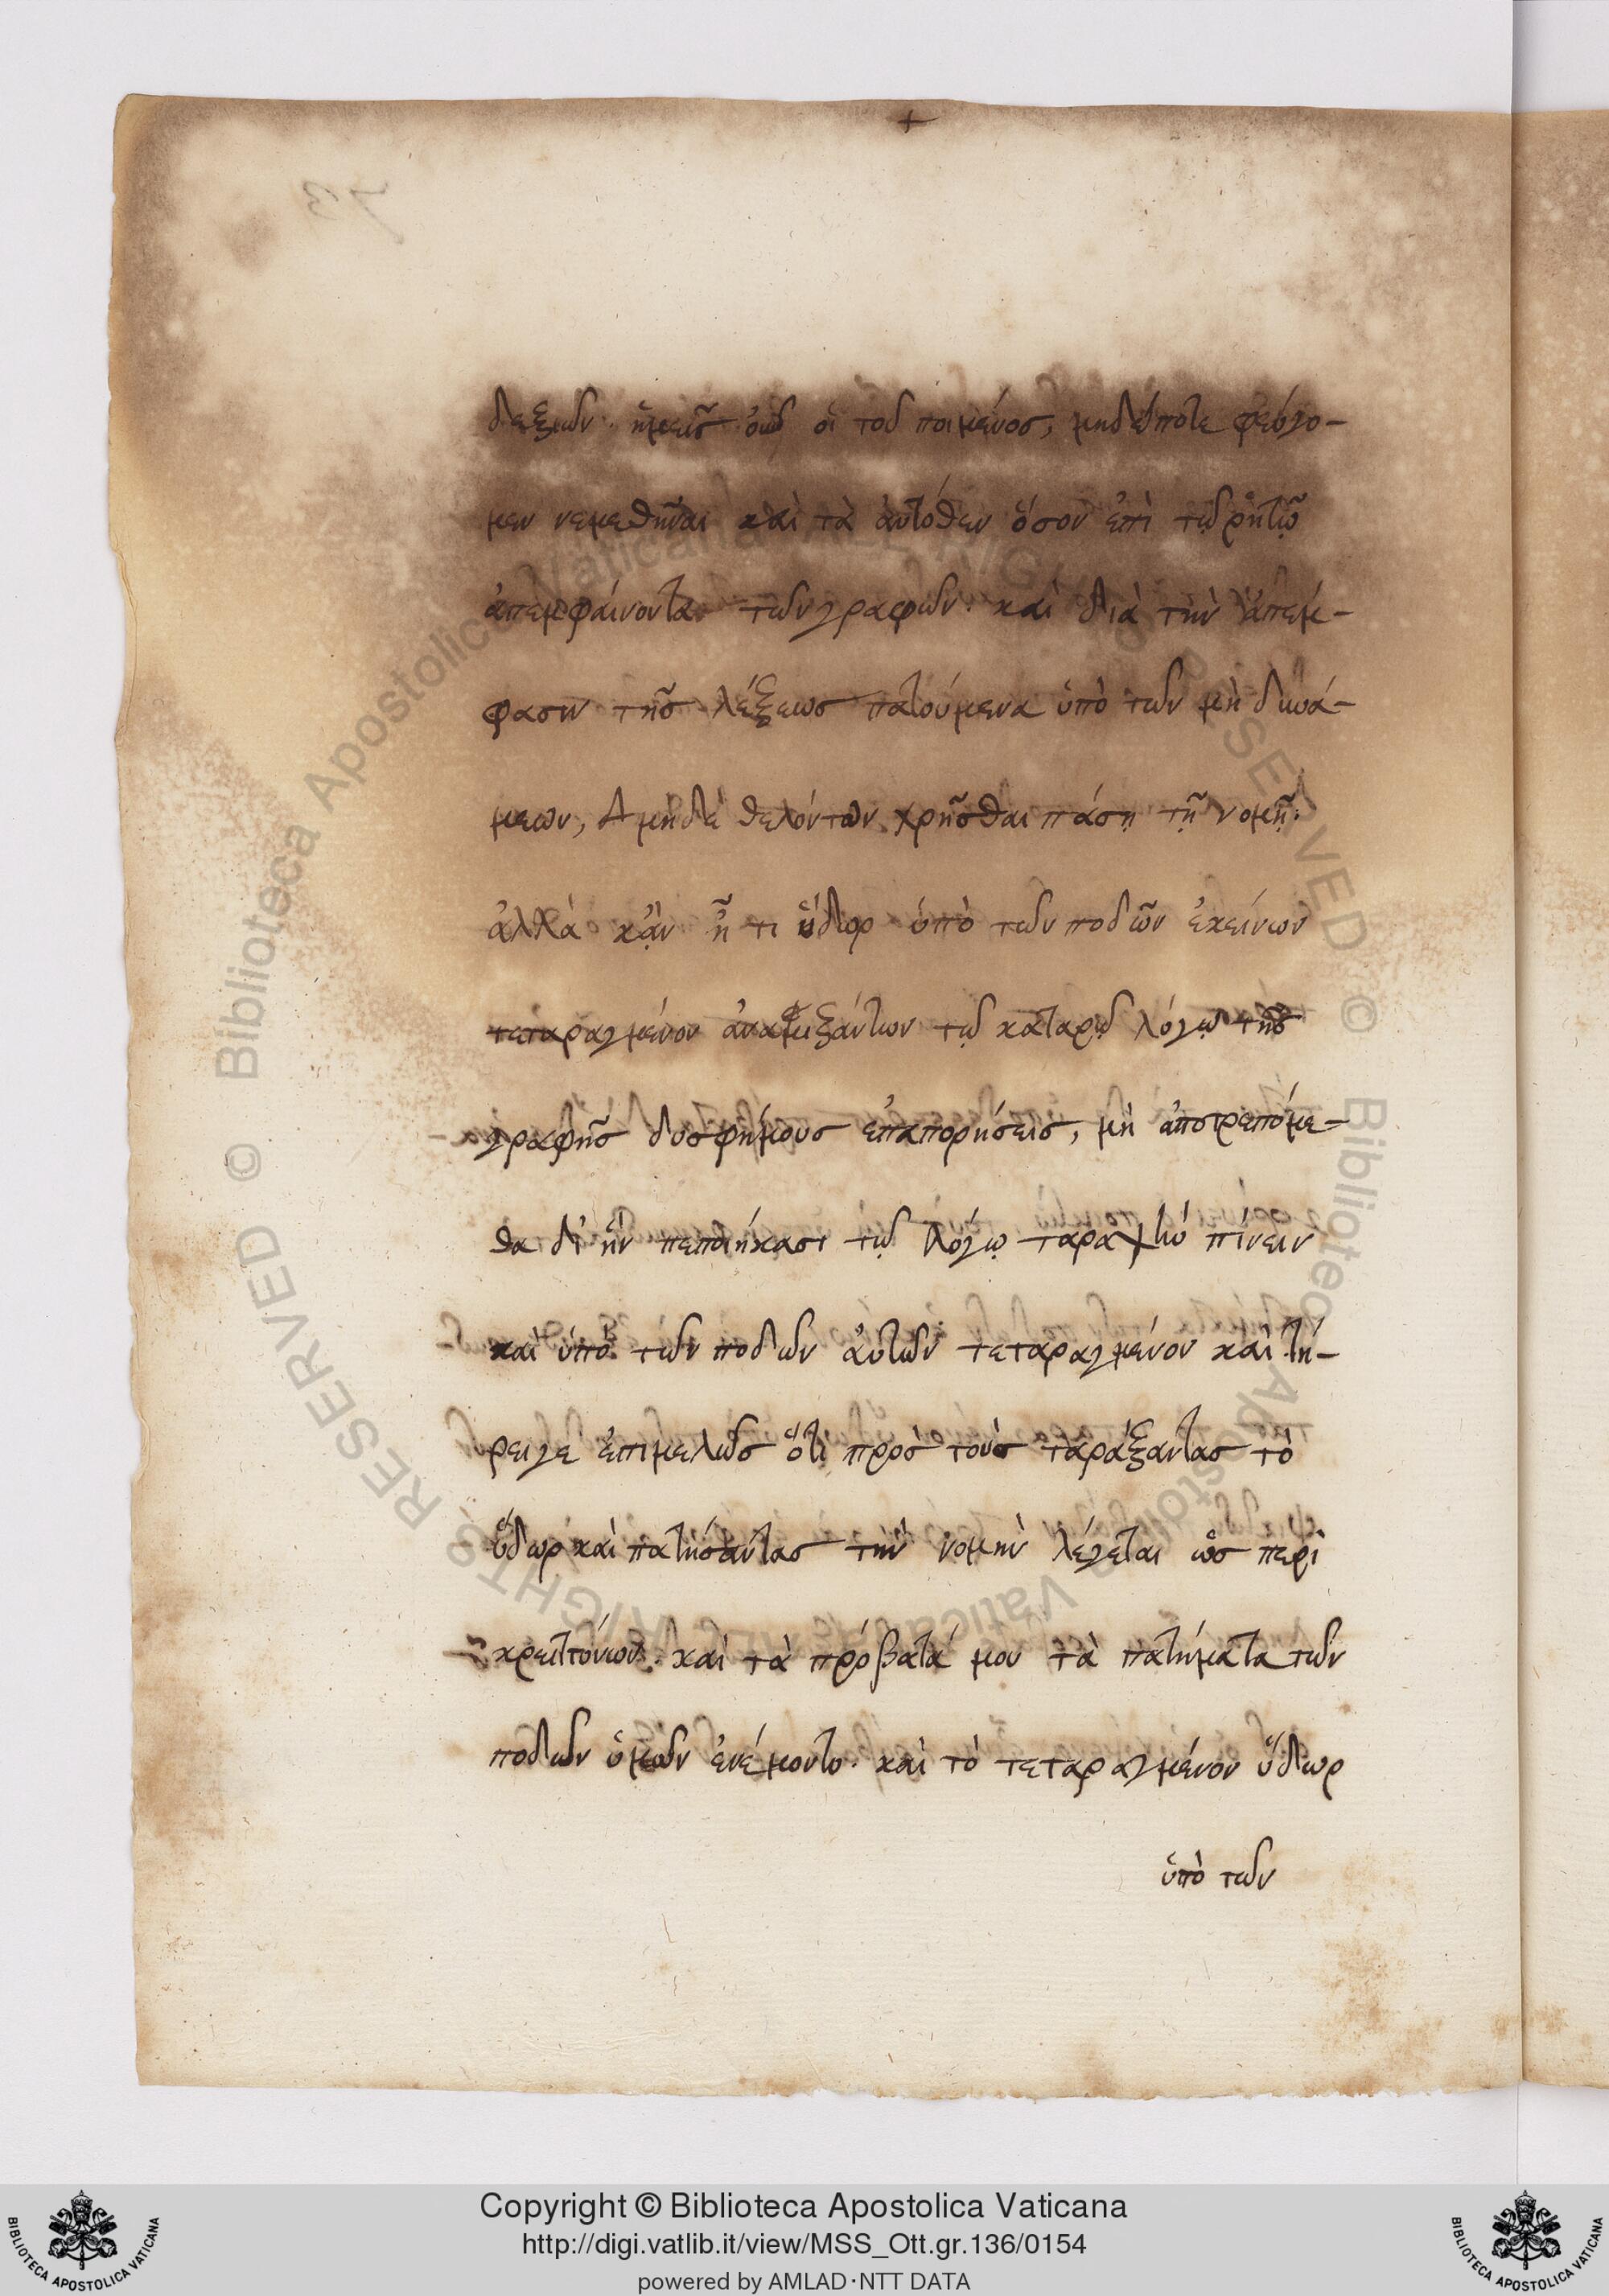 δεξιῶν· ἡμεῖς οὖν οἱ τοῦ ποιμένος, μηδέποτε φεύγο-
μεν νεμεθῆναι καὶ τὰ αὐτόθεν ὅσον ἐπὶ τῷ ῥητῷ
ἀπεμφαίνοντα τῶν γραφῶν· καὶ διὰ τὴν ἀπέμ-
φασιν τῆς λέξεως πατούμενα ὑπὸ τῶν μὴ δυνά-
μεων, μηδὲ θελόντων χρῆσθαι πάσῃ τῇ νομῇ·
ἀλλὰ κἂν ᾖ τι ὕδωρ ὑπὸ τῶν ποδῶν ἐκείνων
τεταραγμένον ἀναμιξάντων τῷ καταρῷ λόγῳ τῆς
γραφῆς δυσφήμους ἐπαπορήσεις, μὴ ἀποτρεπόμε-
θα δι' ἣν πεποιήκασι τῷ λόγῳ ταραχὴν πίνειν
καὶ ὑπὸ τῶν ποδῶν αὐτῶν τεταραγμένον καὶ τή-
ρει γε ἐπιμελῶς ὅτι πρὸς τοὺς ταράξαντας τὸ
ὕδωρ καὶ πατήσαντας τὴν νομὴν λέγεται ὡς περὶ
κρειττόνων· καὶ τὰ πρόβατά μου τὰ πατήματα τῶν
ποδῶν ὑμῶν ἐνέμοντο· καὶ τὸ τεταραγμένον ὕδωρ
ὑπὸ τῶν
Copyright © Biblioteca Apostolica Vaticana
http://digi.vatlib.it/view/MSS_Ott.gr.136/0154
powered by AMLAD·NTT DATA
BIBLIOTECA APOSTOLICA VATICANA
BIBLIOTECA APOSTOLICA VATICANA